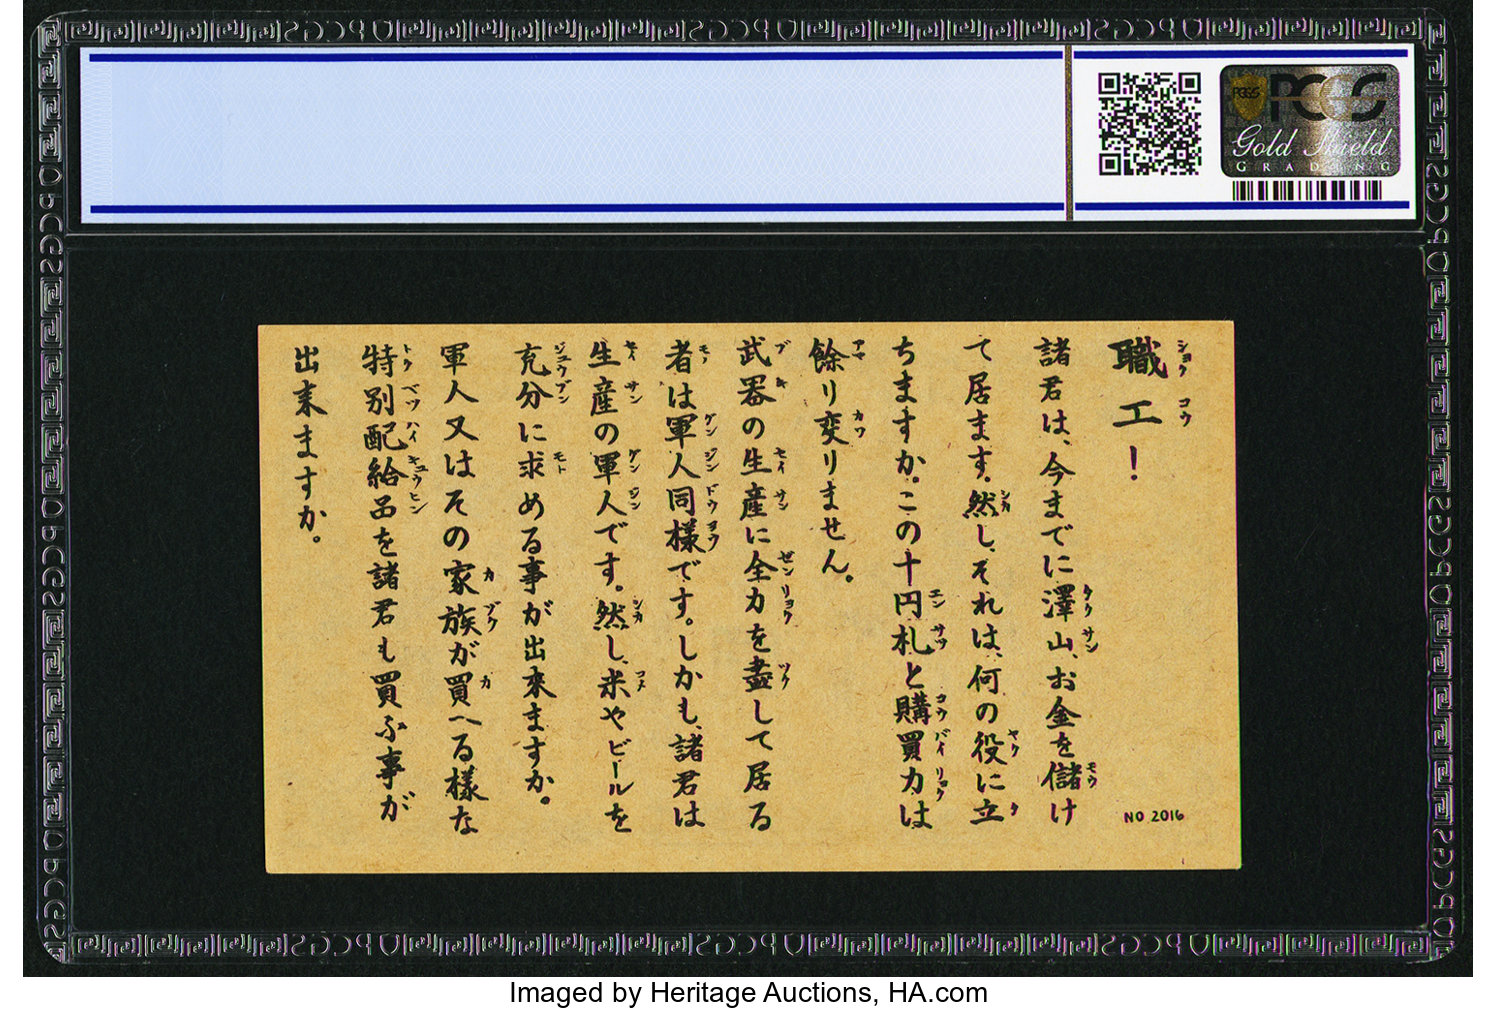 PCGS
PCGS
Gold Shield
GRADING
職工!
諸君は、今までに澤山、お金を儲け
て居ます。然し、それは、何の役に立
ちますか。この十円札と購買力は
餘り変りません。
武器の生産に全力を盡して居る
者は軍人同様です。しかも、諸君は
生産の軍人です。然し、米やビールを
充分に求める事が出来ますか。
軍人又はその家族が買へる様な
特別配給品を諸君も買ふ事が
出来ますか。
NO 2016
Imaged by Heritage Auctions, HA.com